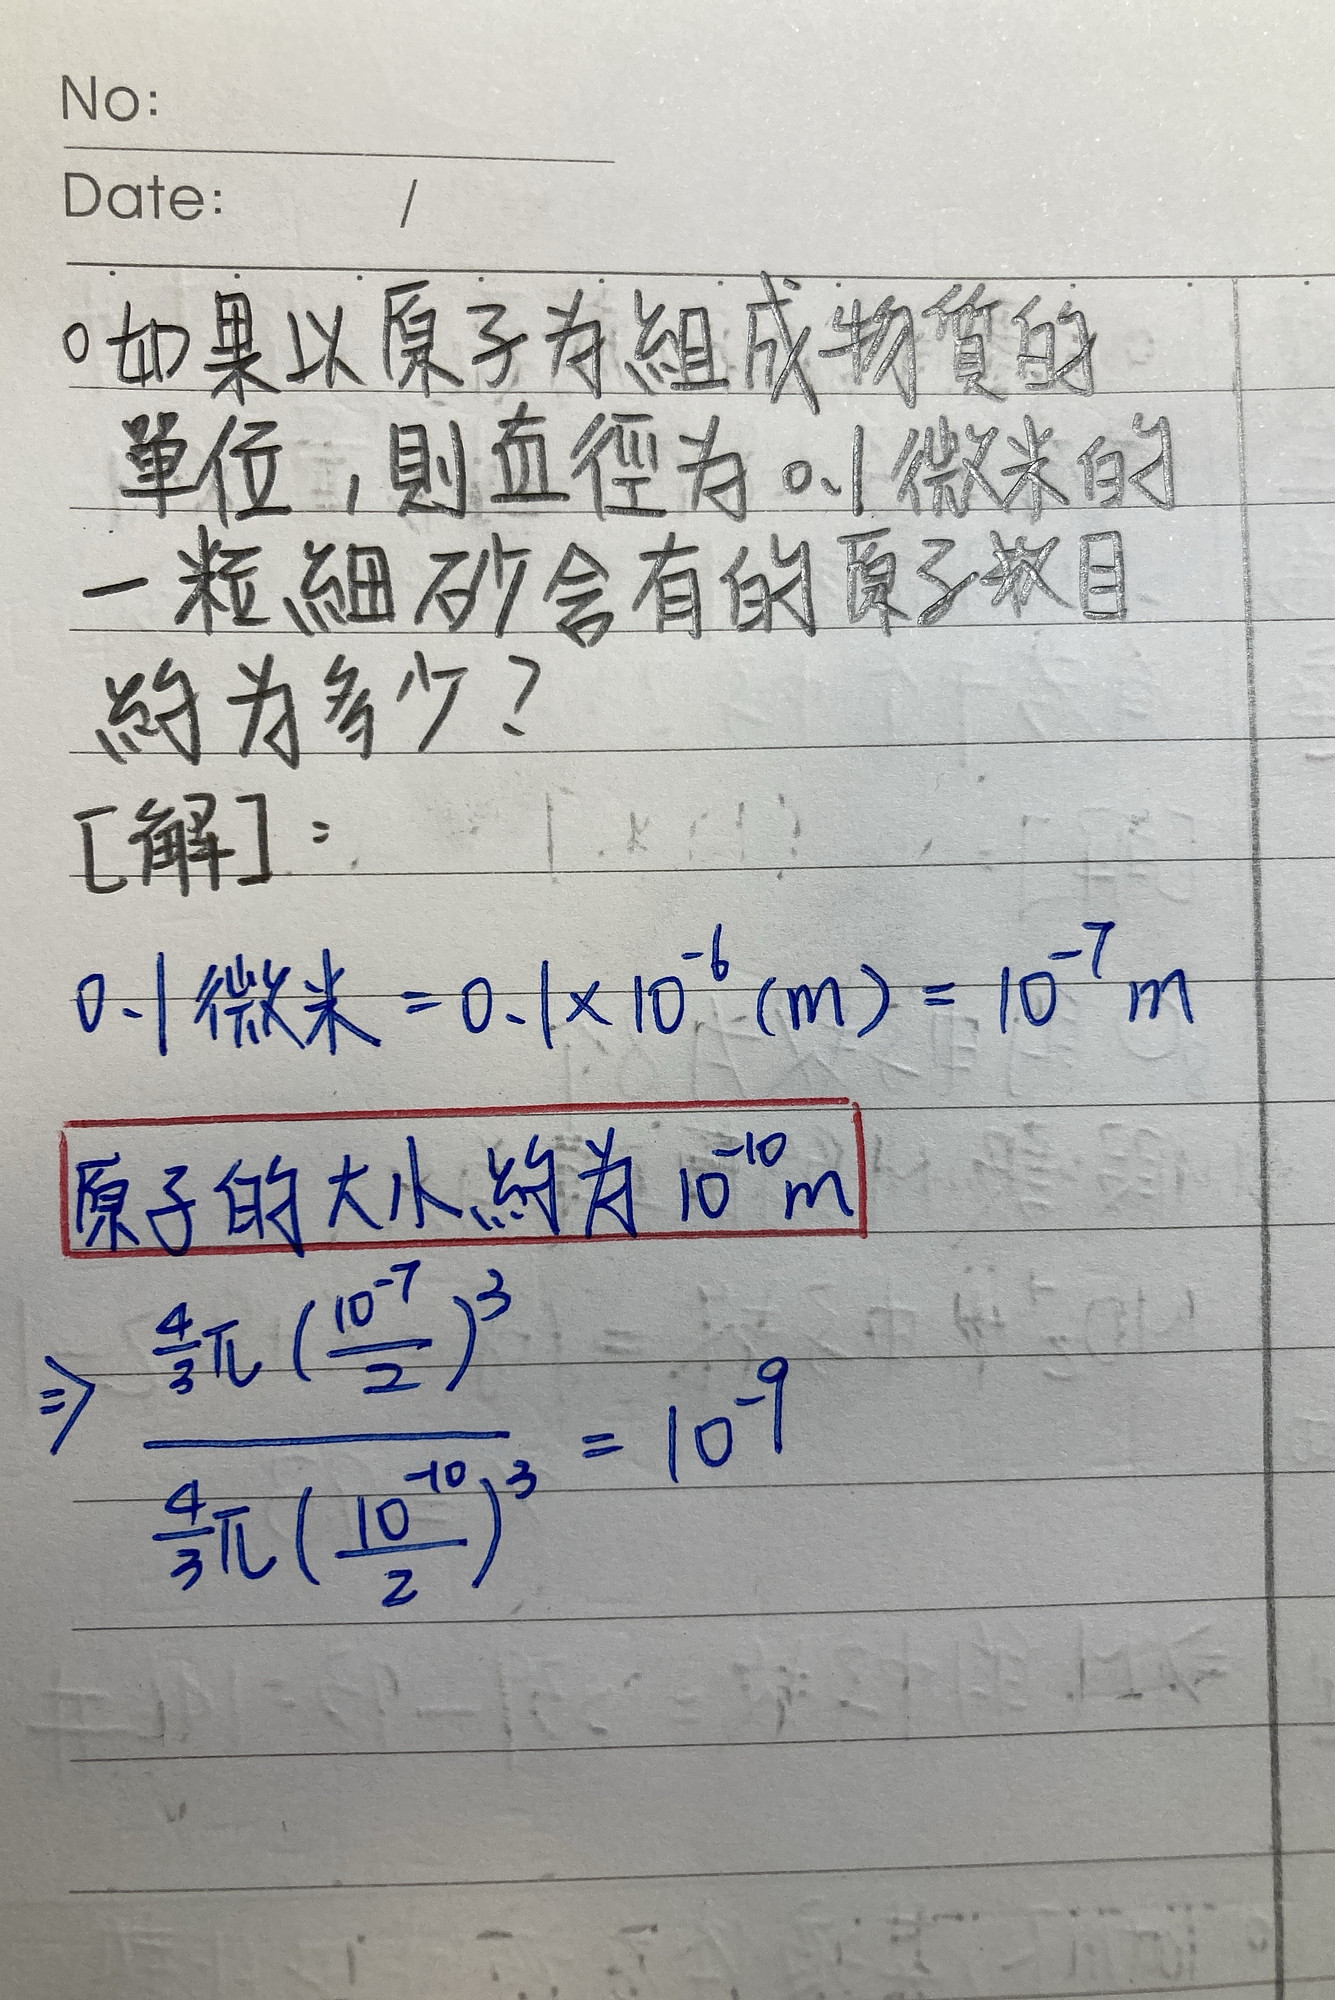 No:
Date: /
○如果以原子為組成物質的
單位,則直徑為0.1微米的
一粒細砂含有的原子數目
約為多少?
[解]:
0.1微米=0.1×10⁻⁶(m)=10⁻⁷m
原子的大小約為10⁻¹⁰m
⇒ (4/3 π (10⁻⁷/2)³) / (4/3 π (10⁻¹⁰/2)³) = 10⁻⁹